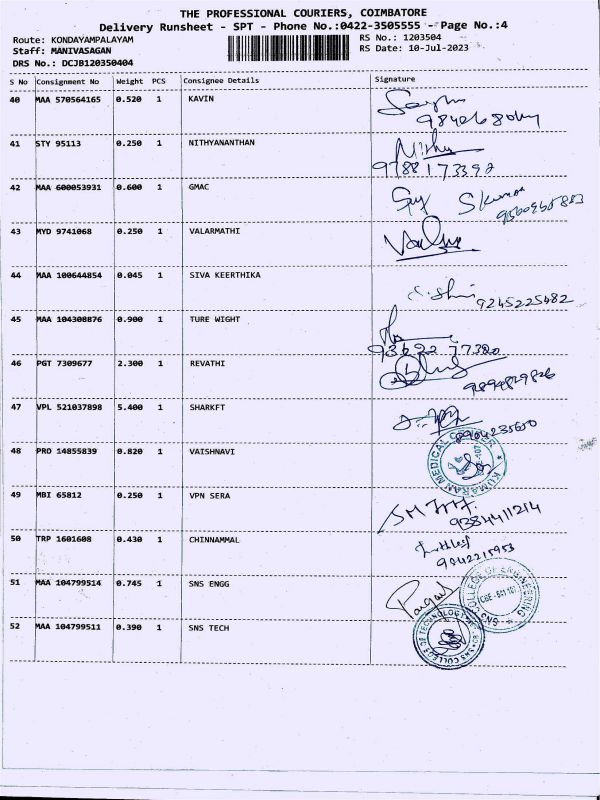 THE PROFESSIONAL COURIERS, COIMBATORE
Delivery Runsheet - SPT - Phone No.:0422-3505555 - Page No.:4
Route: KONDAYAMPALAYAM RS No.: 1203504
Staff: MANIVASAGAN RS Date: 10-Jul-2023
DRS No.: DCJB120350404
S No Consignment No Weight PCS Consignee Details Signature
40 MAA 570564165 0.520 1 KAVIN
41 STY 95113 0.250 1 NITHYANANTHAN Nithy
9788173392
42 MAA 600053931 0.600 1 GMAC S Kumar
43 MYD 9741068 0.250 1 VALARMATHI
44 MAA 100644854 0.045 1 SIVA KEERTHIKA
9245225482
45 MAA 104308876 0.900 1 TURE WIGHT
46 PGT 7309677 2.300 1 REVATHI
9894829826
47 VPL 521037898 5.400 1 SHARKFT
48 PRO 14855839 0.820 1 VAISHNAVI KUMARAN MEDICAL CENTER
49 MBI 65812 0.250 1 VPN SERA
9384411214
50 TRP 1601608 0.430 1 CHINNAMMAL
9042215953
51 MAA 104799514 0.745 1 SNS ENGG SNS COLLEGE OF ENGINEERING
52 MAA 104799511 0.390 1 SNS TECH SNS COLLEGE OF TECHNOLOGY